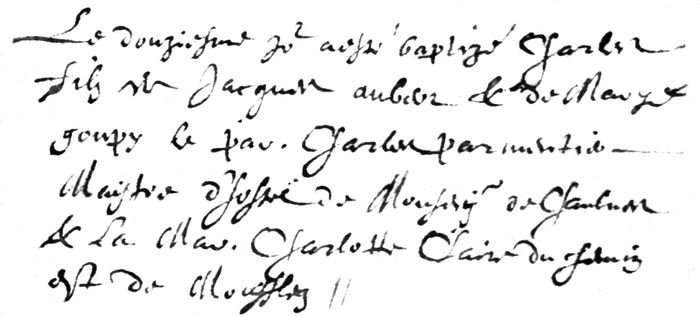 Le douziesme jor a esté baptizé Charles
filz de Jacques auber & de Marye
goupy le par. Charles parmentie
Maistre d'hostel de Monseigr de Chaulnes
& La Mar. Charlotte Claire du chemin
est de